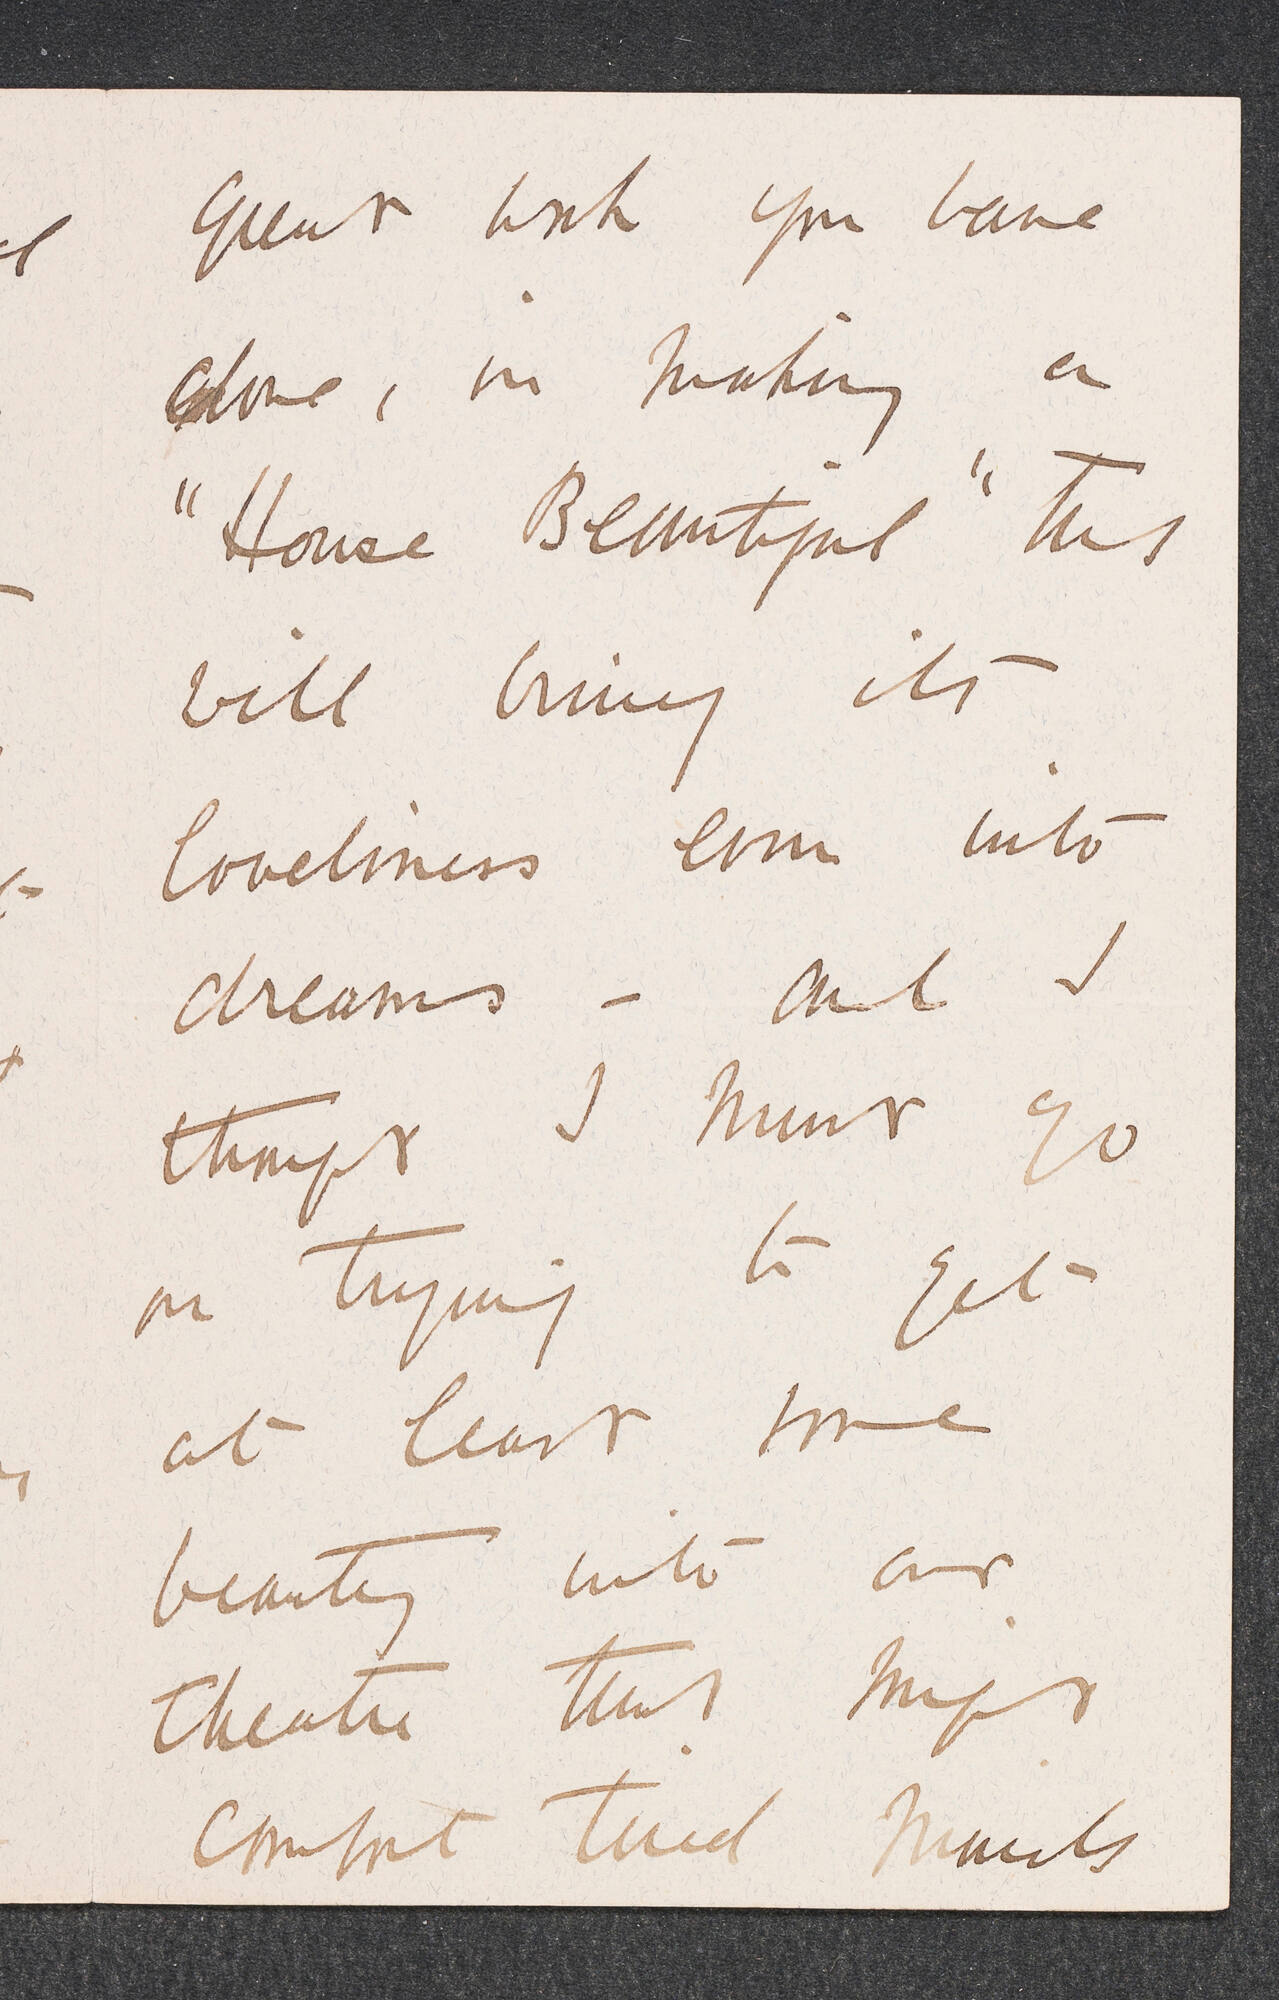 great work you have
done, in making a
"House Beautiful" that
will bring its
loveliness even into
dreams - and I
though I must go
on trying to get
at least some
beauty into our
theatre that might
comfort tired minds